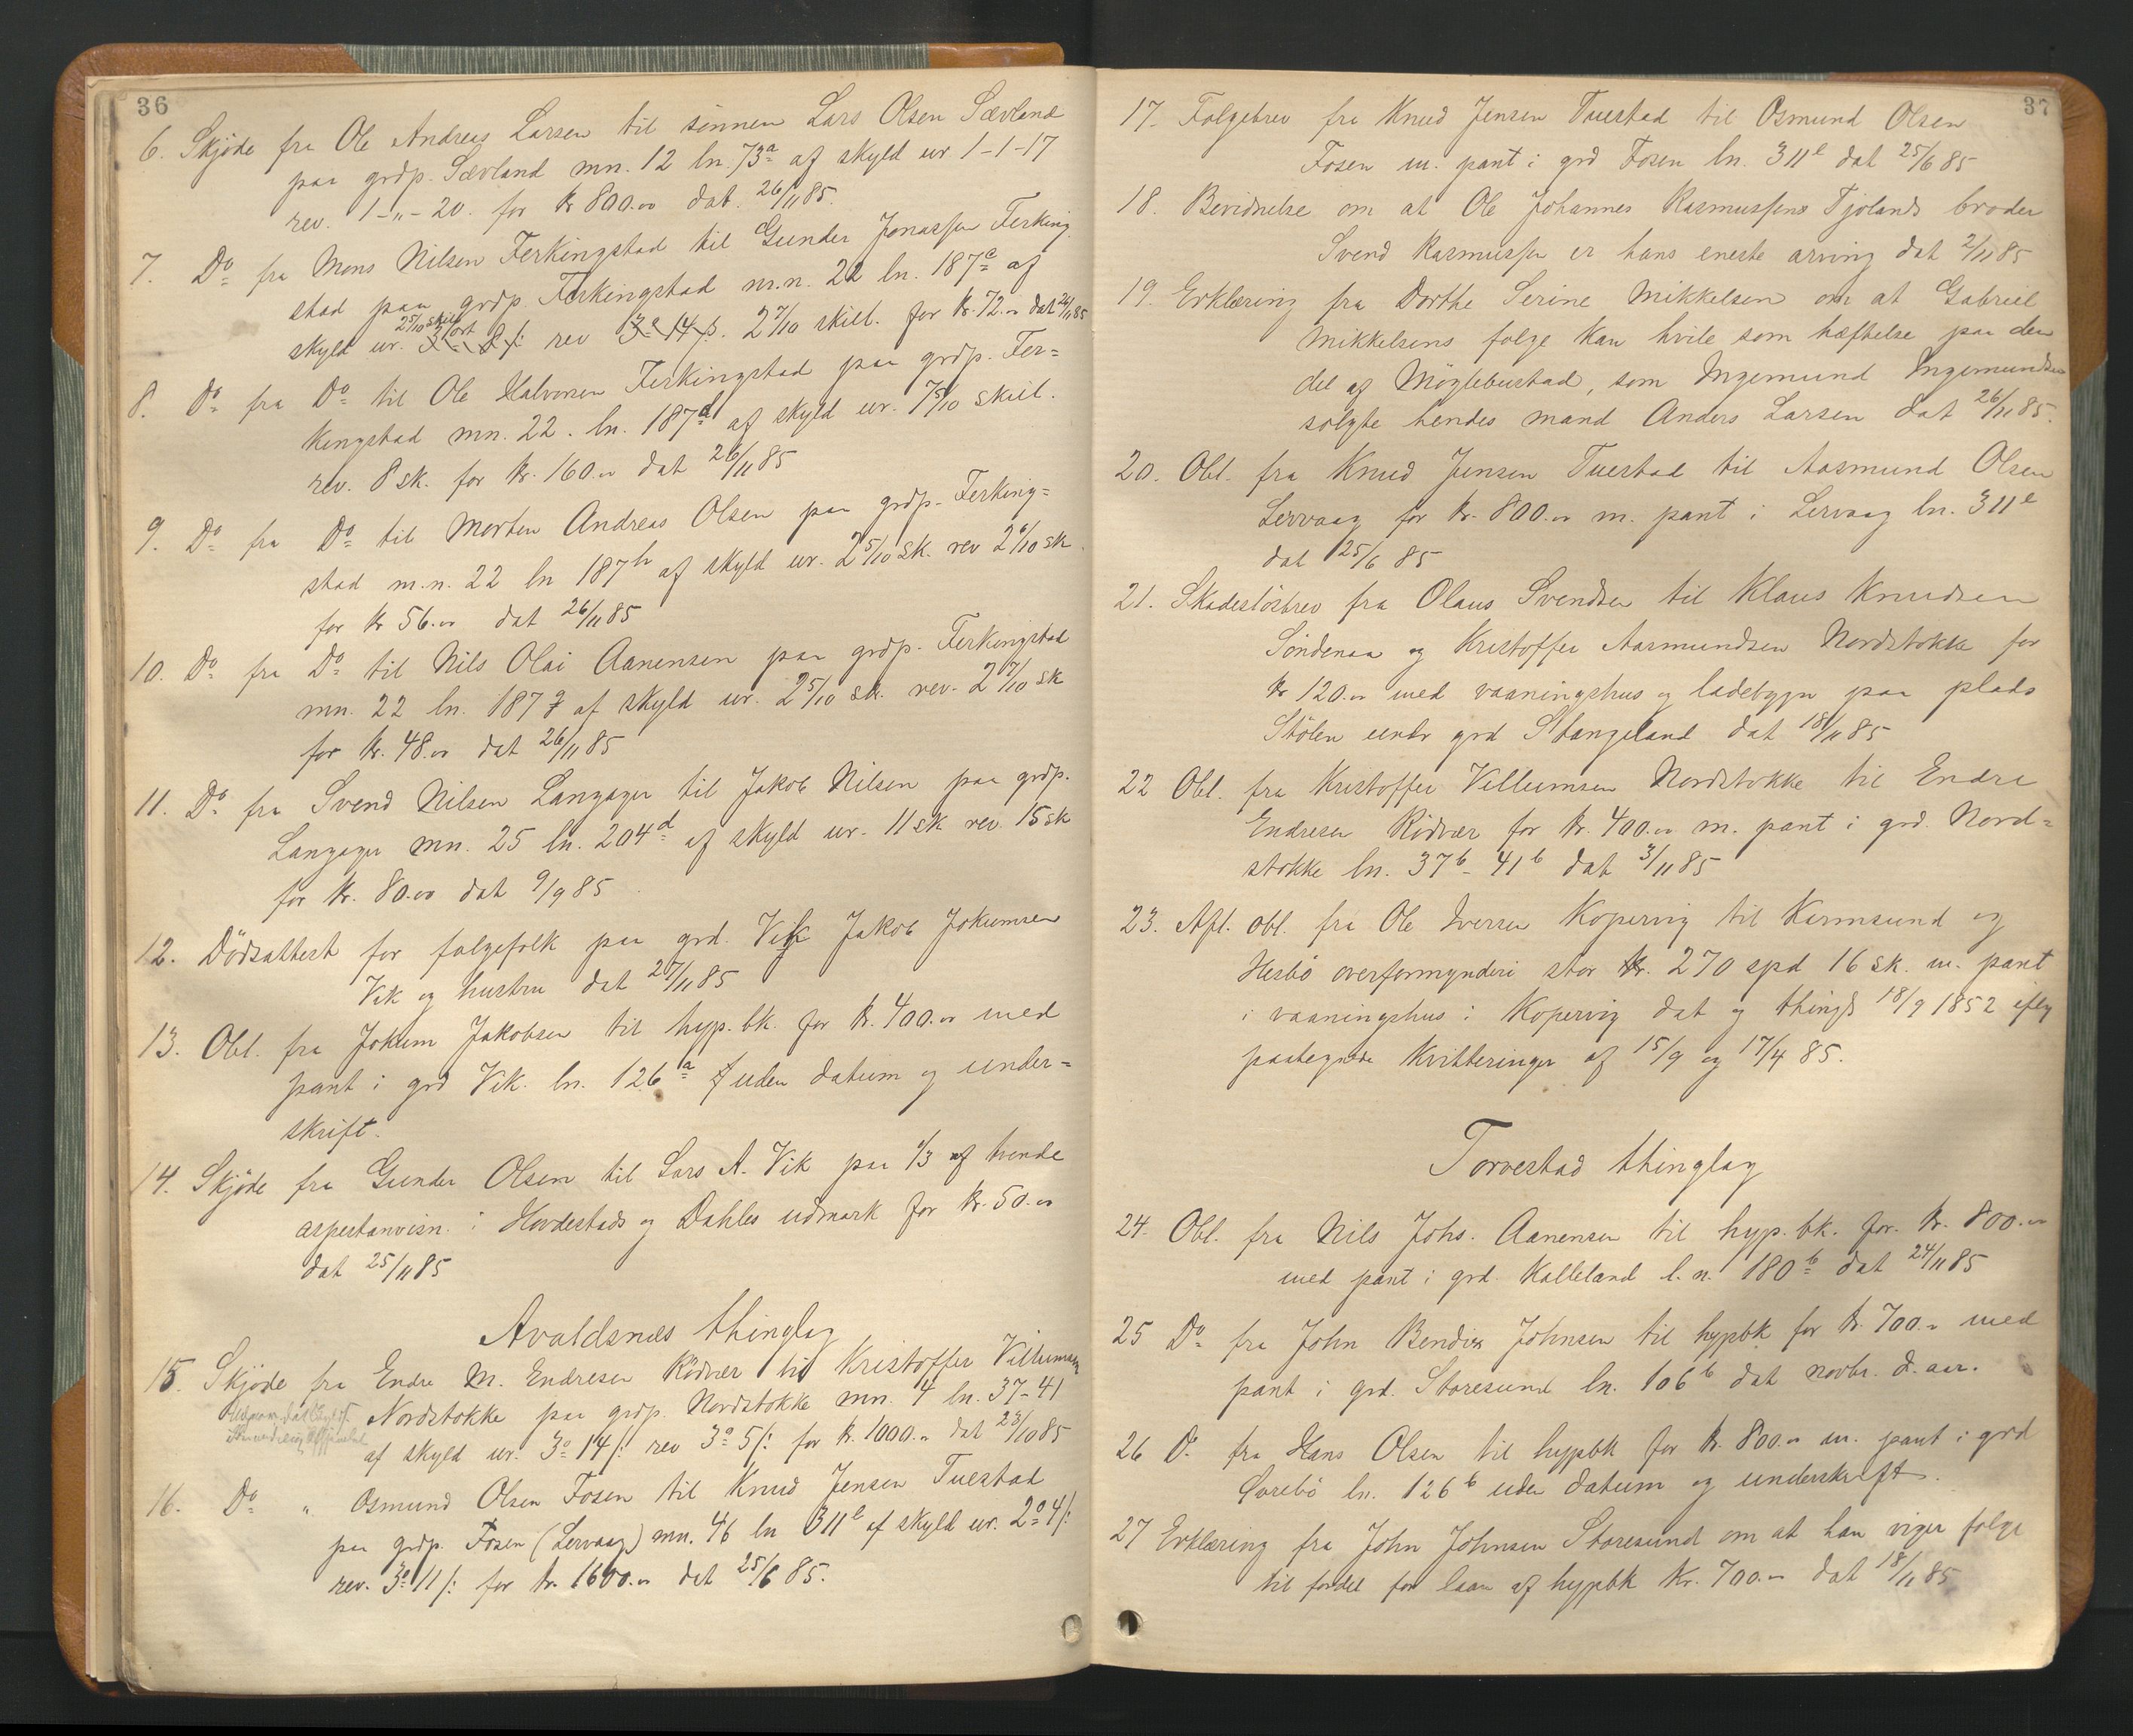 36
6. Skjöde fra Ole Andreas Larsen til sönnen Lars Olsen Sævland
paa grdp. Sævland mn. 12 ln. 73a af skyld ur 1-1-17
rev. 1-"-20. for kr 800.00 dat. 26/11 85.
7. Do fra Mons Nilsen Ferkingstad til Gunder Jonassen Ferking
stad paa grdp. Ferkingstad m.n. 22 ln. 187e af
25/10 skill
skyld ur. 3 ort 8 /: rev 3o 14 /: 2 7/10 skill. for kr. 72.00 dat 26/11 85
8. Do fra Do til Ole Halvorsen Ferkingstad paa grdp. Fer=
kingstad mn. 22. ln. 187d af skyld ur. 7 5/10 skill.
rev. 8 sk. for kr. 160.00 dat 26/11 85
9. Do fra Do til Morten Andreas Olsen paa grdp. Ferking=
stad m.n. 22 ln 187h af skyld ur. 2 5/10 sk. rev 2 6/10 sk.
for kr 56.00 dat 26/11 85
10. Do fra Do til Nils Olai Aanensen paa grdp. Ferkingstad
mn. 22 ln. 187 g af skyld ur. 2 5/10 sk. rev. 2 7/10 sk
for kr. 48.00 dat 26/11 85
11. Do fra Svend Nilsen Langager til Jakob Nilsen paa grdp.
Langager mn. 25 ln. 204d af skyld ur. 11 sk rev. 15 sk
for kr. 80.00 dat 9/9 85
12. Dödsattest for folgefolk paa grd. Vik Jakob Jokumsen
Vik og hustru dat 27/11 85
13. Obl. fra Jokum Jakobsen til hyp. bk. for kr. 400.00 med
pant i grd Vik. ln. 126a uden datum og under=
skrift.
14. Skjöde fra Gunder Olsen til Lars A. Vik paa 1/3 af hende
aspestanvisn. i Hovdestads og Dahles udmark for kr. 50.00
dat 25/11 85
Avaldsnæs thinglag
15. Skjöde fra Endre M. Endresen Rödvær til Kristoffer Villumsen
Nordstokke paa grdp. Nordstokke mn. 4 ln. 37-41
af skyld ur. 3o 14 /: rev 3o 5 /: for kr. 1000.00 dat 23/10 85
16. Do " Osmund Olsen Fosen til Knud Jensen Tuestad
paa grdp. Fosen (Lervaag) mn. 46 ln 311e af skyld ur. 2o 4 /:
rev. 3o 11 /: for kr. 1600.00 dat 25/6 85.
37
17. Folgebrev fra Knud Jensen Tuestad til Osmund Olsen
Fosen m. pant i grd Fosen ln. 311e dat 25/6 85
18. Bevidnelse om at Ole Johannes Rasmussens Tjolands broder
Svend Rasmussen er hans eneste arving dat 2/11 85
19. Erklæring fra Dorthe Serine Mikkelsen om at Gabriel
Mikkelsens folge kan hvile som hæftelse paa den
del af Möglebustad, som Ingemund Ingemundsen
solgte hendes mand Anders Larsen dat 26/11 85.
20. Obl. fra Knud Jensen Tuestad til Aasmund Olsen
Lervaag for kr. 800.00 m. pant i Lervaag ln. 311e
dat 25/6 85
21. Skadeslösbrev fra Olaus Svendsen til Klaus Knudsen
Söndenaa og Kristoffer Aasmundsen Nordstokke for
kr 120.00 med vaaningshus og ladebygn paa plads
Stölen under grd Stangeland dat 18/11 85
22 Obl. fra Kristoffer Villumsen Nordstokke til Endre
Endresen Rödvær for kr. 400.00 m. pant i grd. Nord=
stokke ln. 37b-41b dat 3/11 85
23. Afl. obl. fra Ole Iversen Kopervig til Karmsund og
Hesbö overformynderi stor 270 spd 16 sk. m. pant
i vaaningshus i Kopervig dat og thingl 18/9 1852 iflg
paategnede kvitteringer af 15/9 og 17/4 85.
Torvestad thinglag
24. Obl. fra Nils Johs. Aanensen til hyp. bk. for kr. 800.00
med pant i grd. Kalleland l.n. 180b dat 24/11 85
25 Do fra John Bendix Johnsen til hypbk for kr. 700.00 med
pant i grd. Storesund ln. 106b dat novbr. d. aar.
26 D. fra Hans Olsen til hypbk for kr. 800.00 m. pant i grd
Börebö ln. 126b uden datum og underskrift.
27 Erklæring fra John Johnsen Storesund om at han viger folge
til fordel for laan af hypbk kr. 700.00 dat 18/11 85